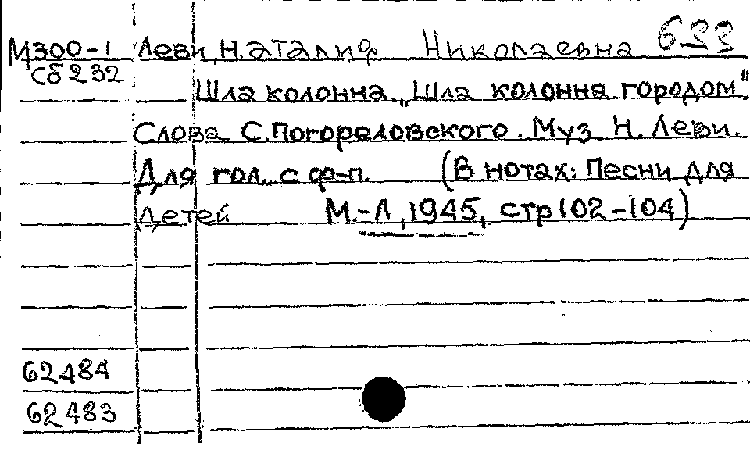 М300-1 Леви, Наталия Николаевна 633
Сб 232
Шла колонна. „Шла колонна городом"
Слова С. Погореловского. Муз Н. Леви.
Для гол. с ф-п. (В нотах: Песни для
детей М.-Л, 1945, стр 102-104)
62484
62483